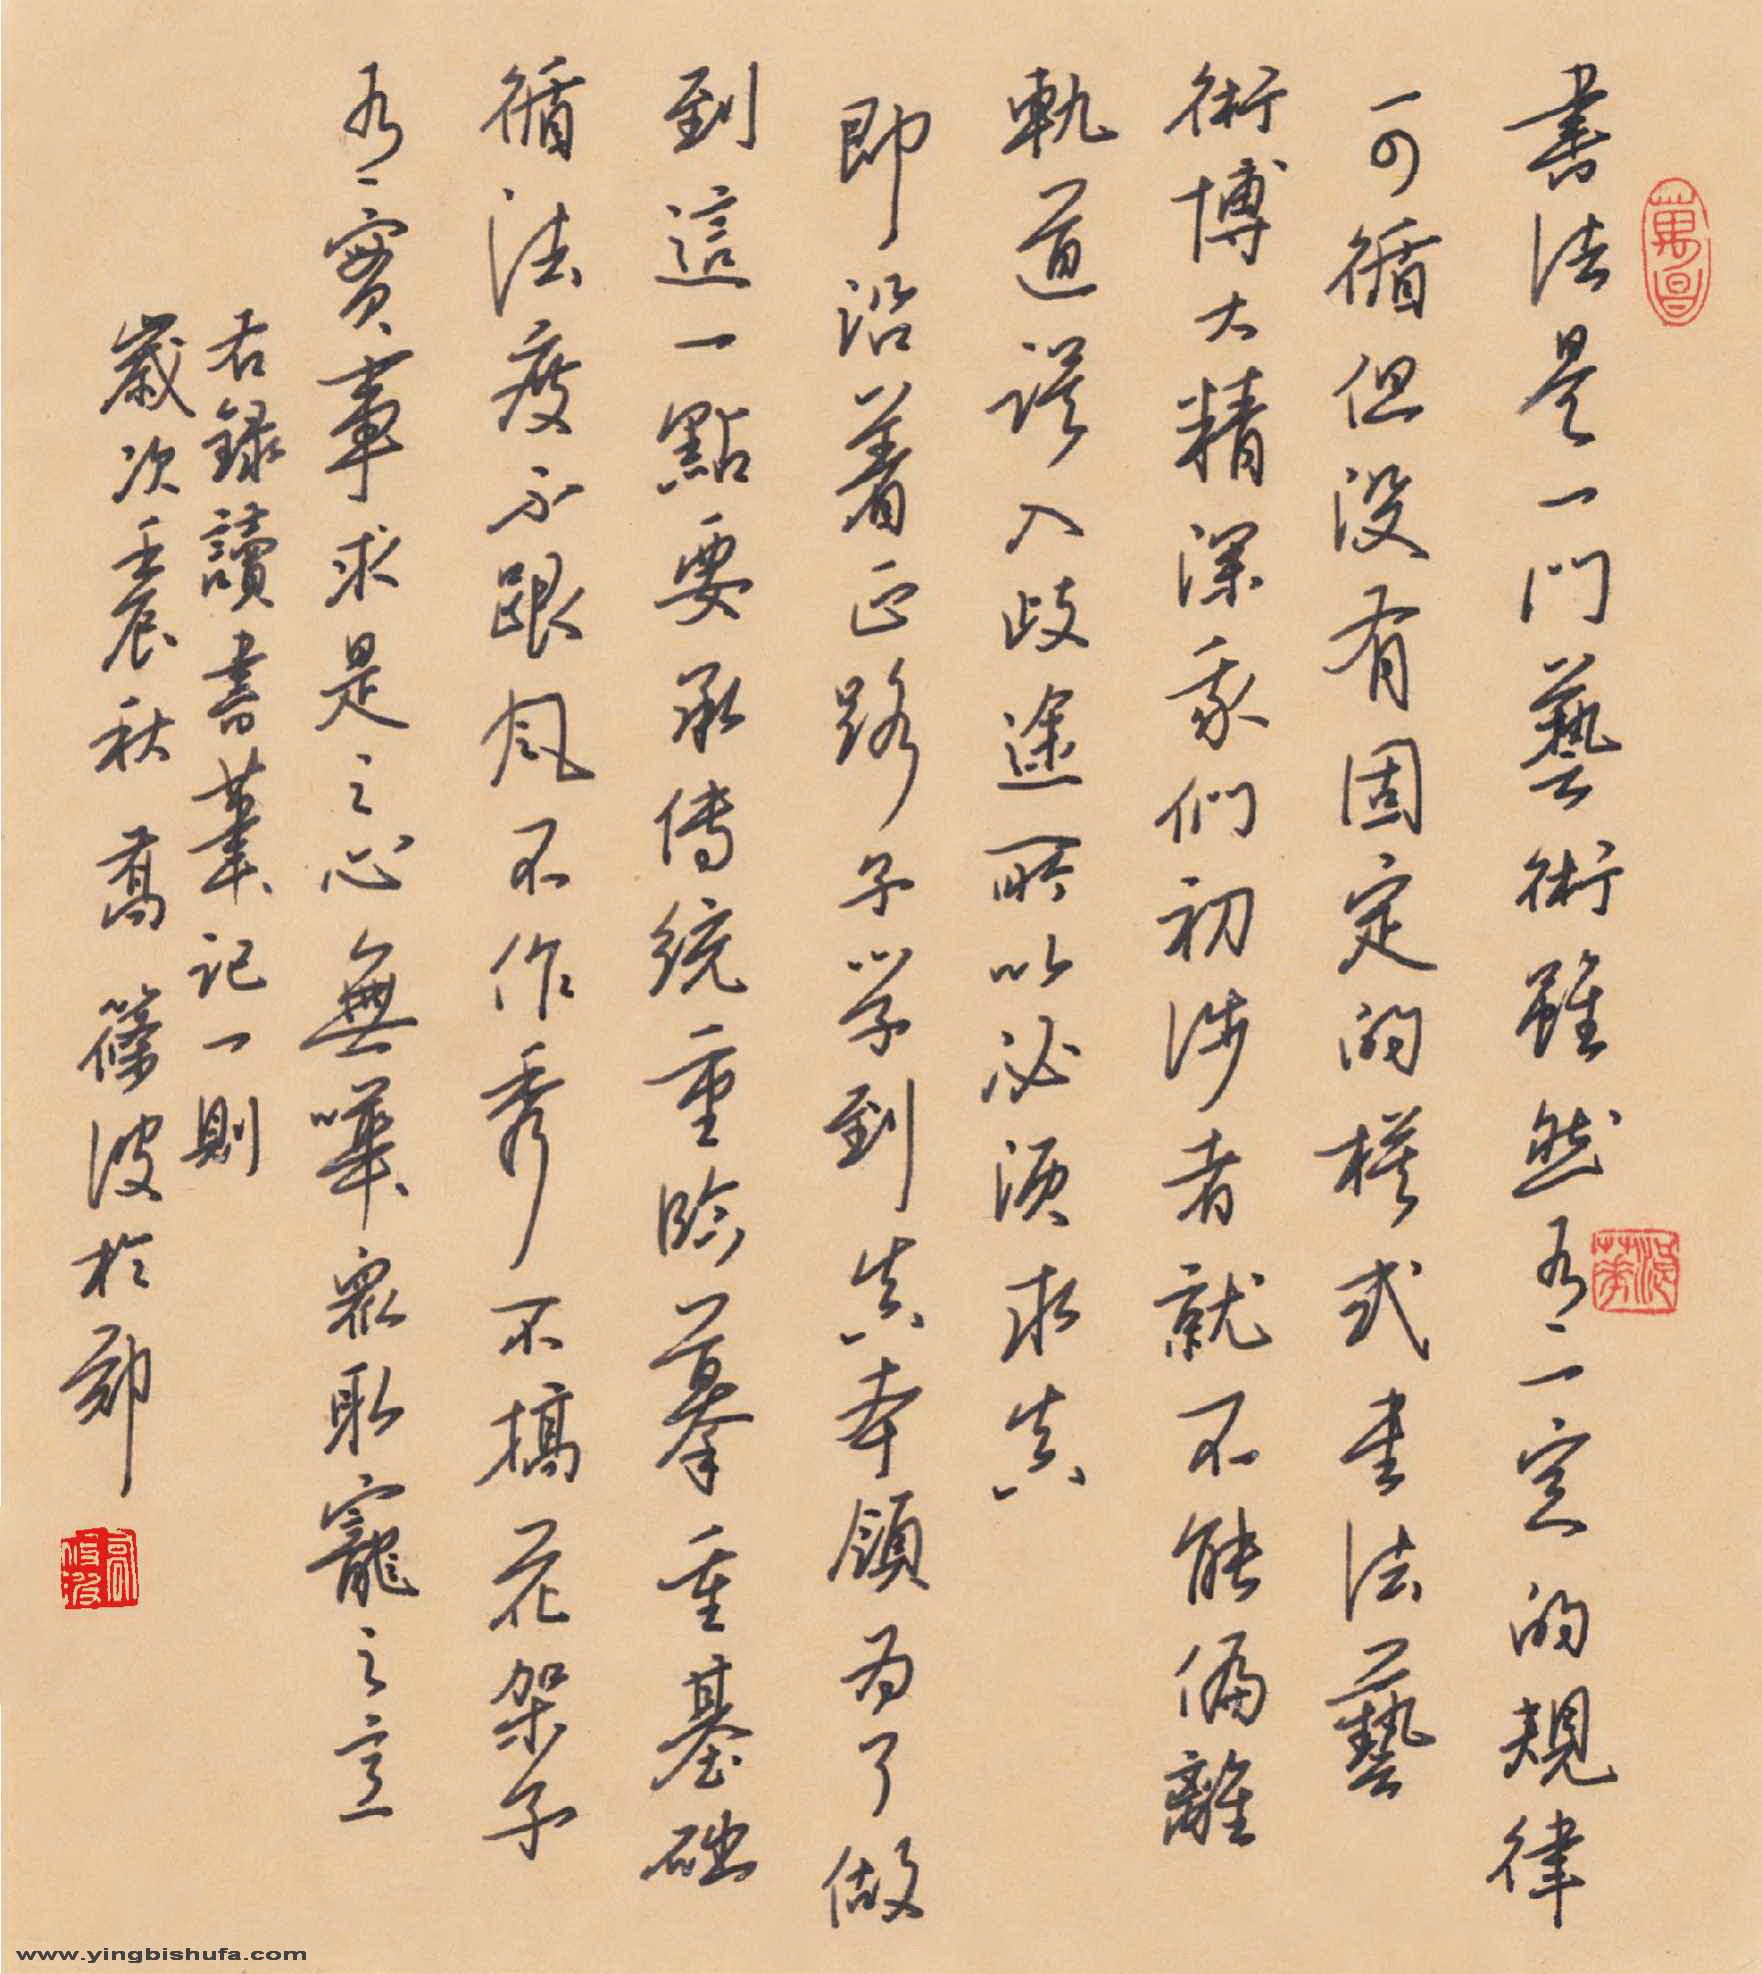 書法是一門藝術雖然有一定的規律
可循但没有固定的模式書法藝
術博大精深我們初涉者就不能偏離
軌道誤入歧途所以必須求真
即沿着正路子学到真本領為了做
到這一點要承傳統重臨摹重基礎
循法度不跟風不作秀不搞花架子
有實事求是之心無嘩衆取寵之意
右録讀書筆記一則
歲次壬辰秋高篠波於鄭
www.yingbishufa.com